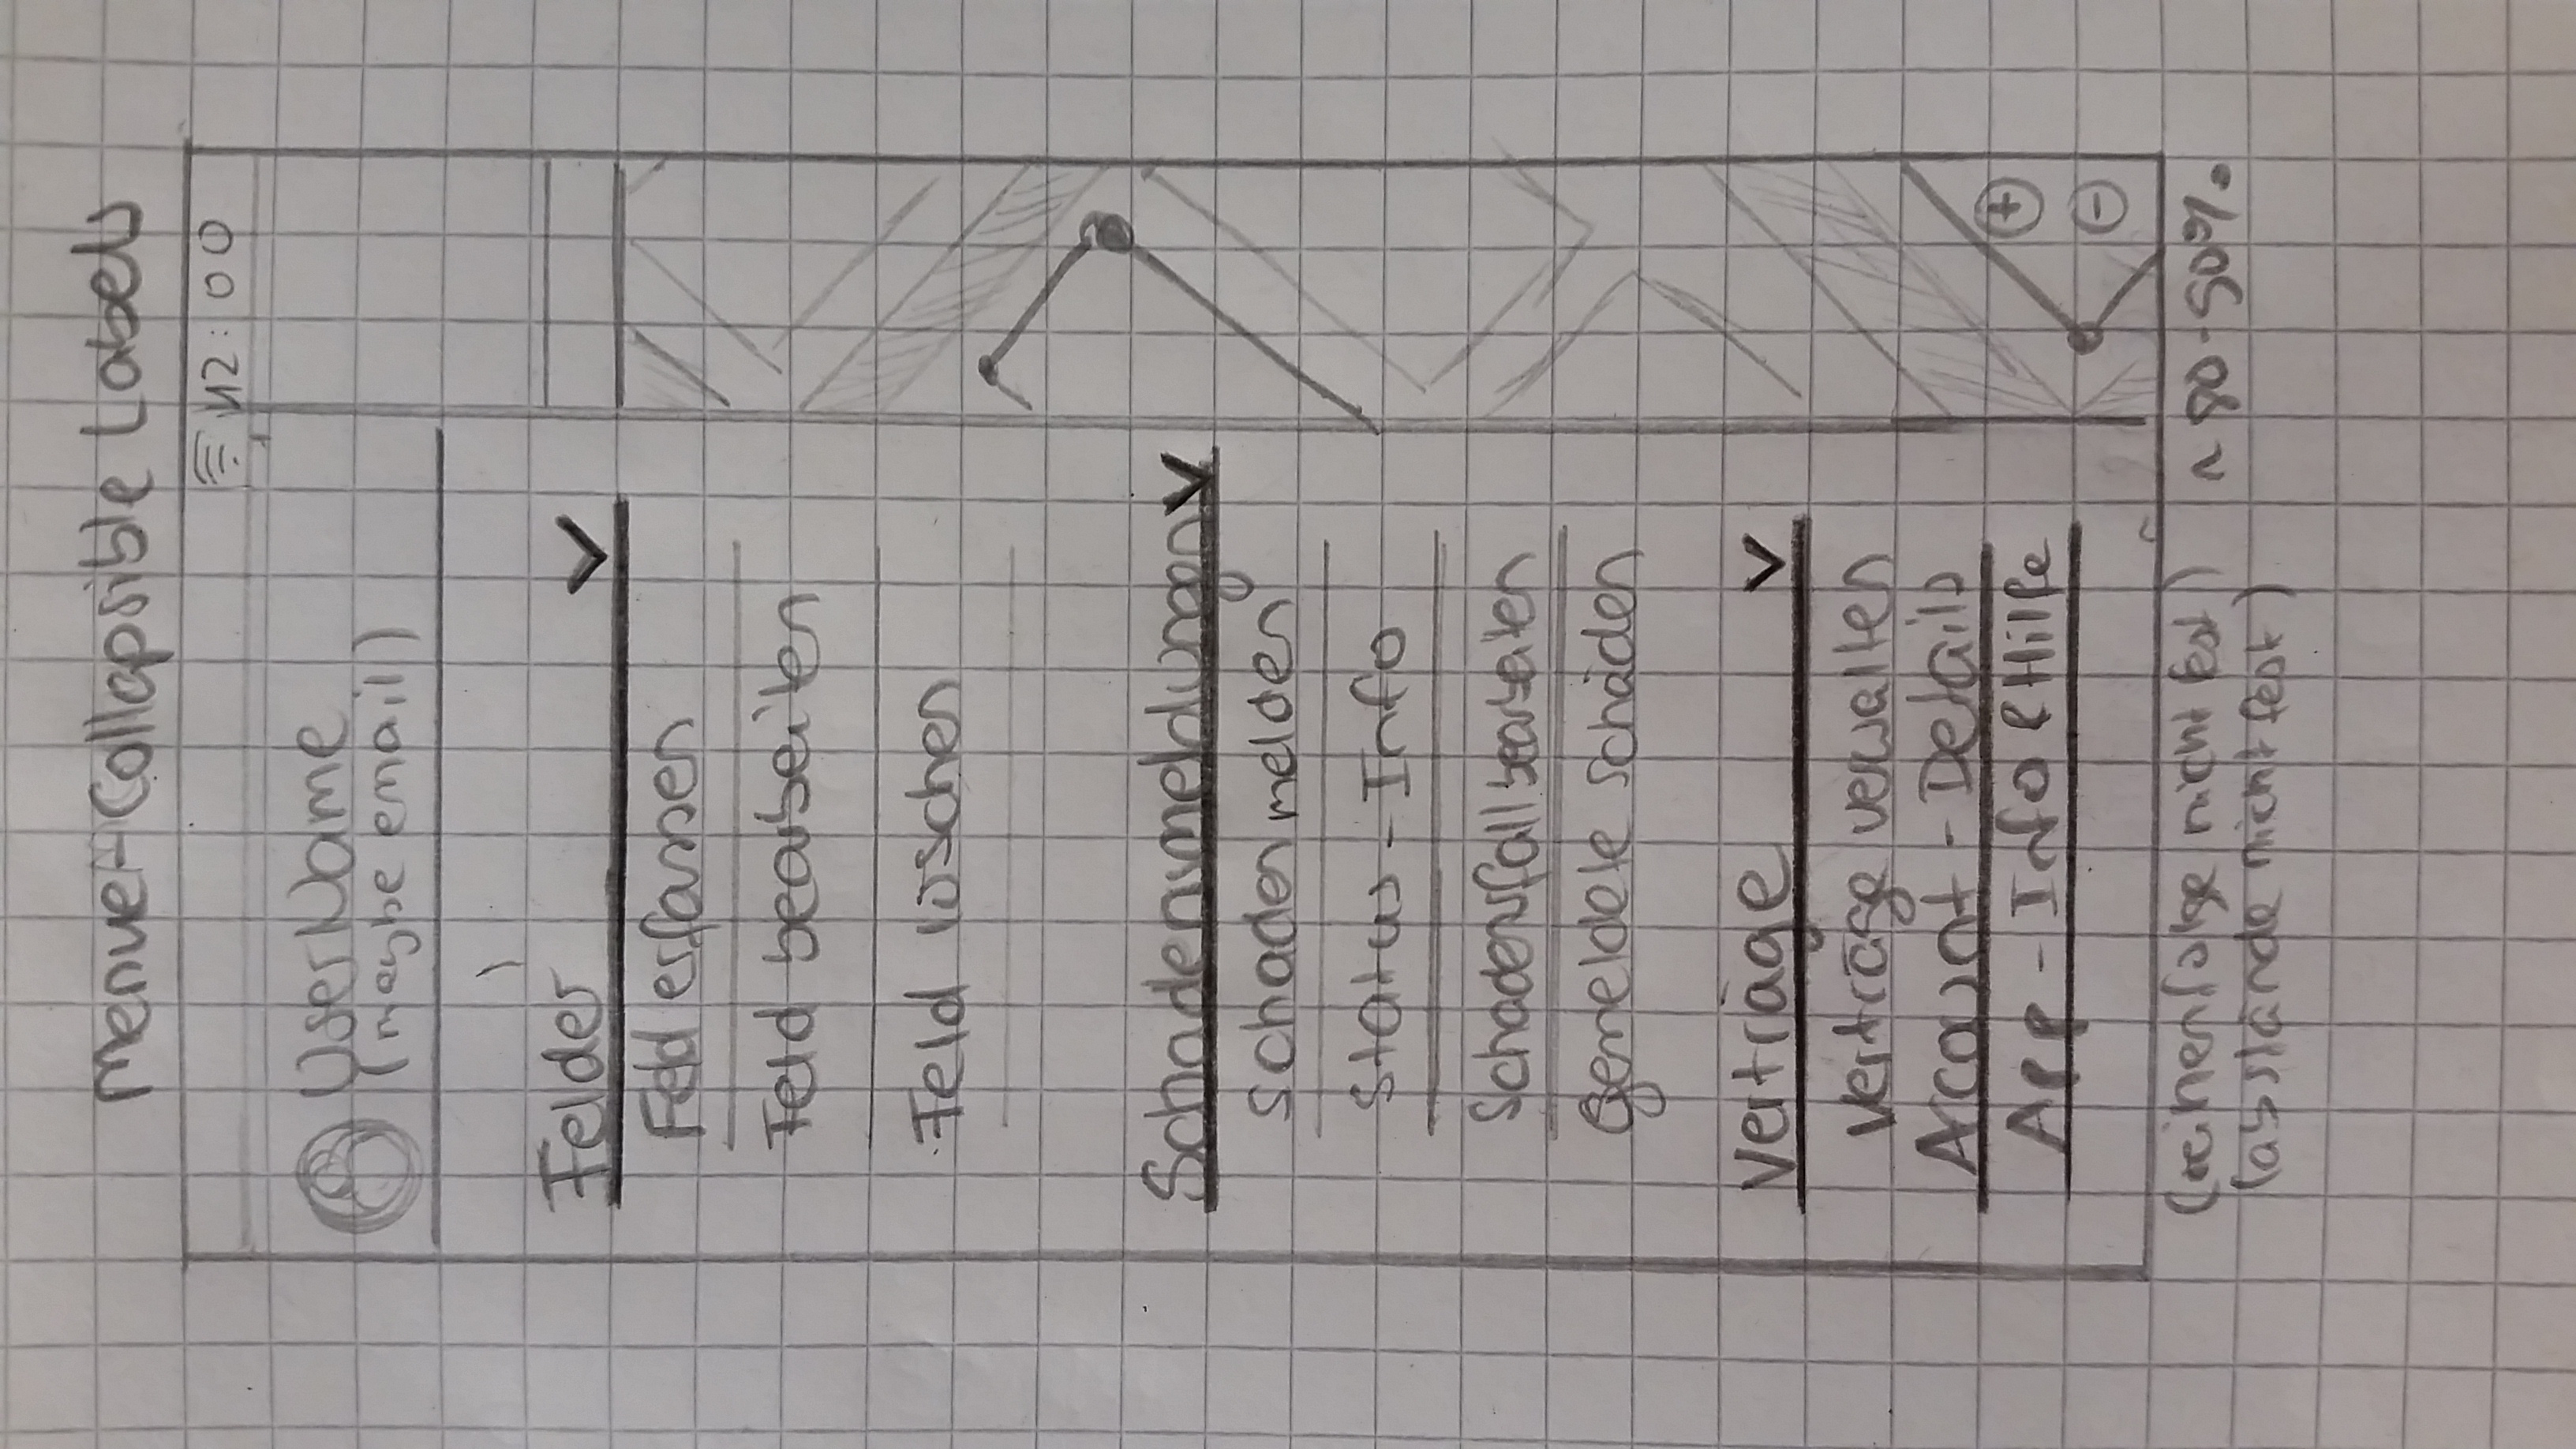 Menue-Collapsible Labels
12:00
UserName
(maybe email)
Felder
Feld erfassen
Feld bearbeiten
Feld löschen
Schadensmeldungen
Schaden melden
Status-Info
Schadensfall bearbeiten
gemeldete Schäden
Verträge
Verträge verwalten
Account-Details
App-Info & Hilfe
+
-
(reihenfolge nicht fest)
~ 80-90%
(abstände nicht fest)